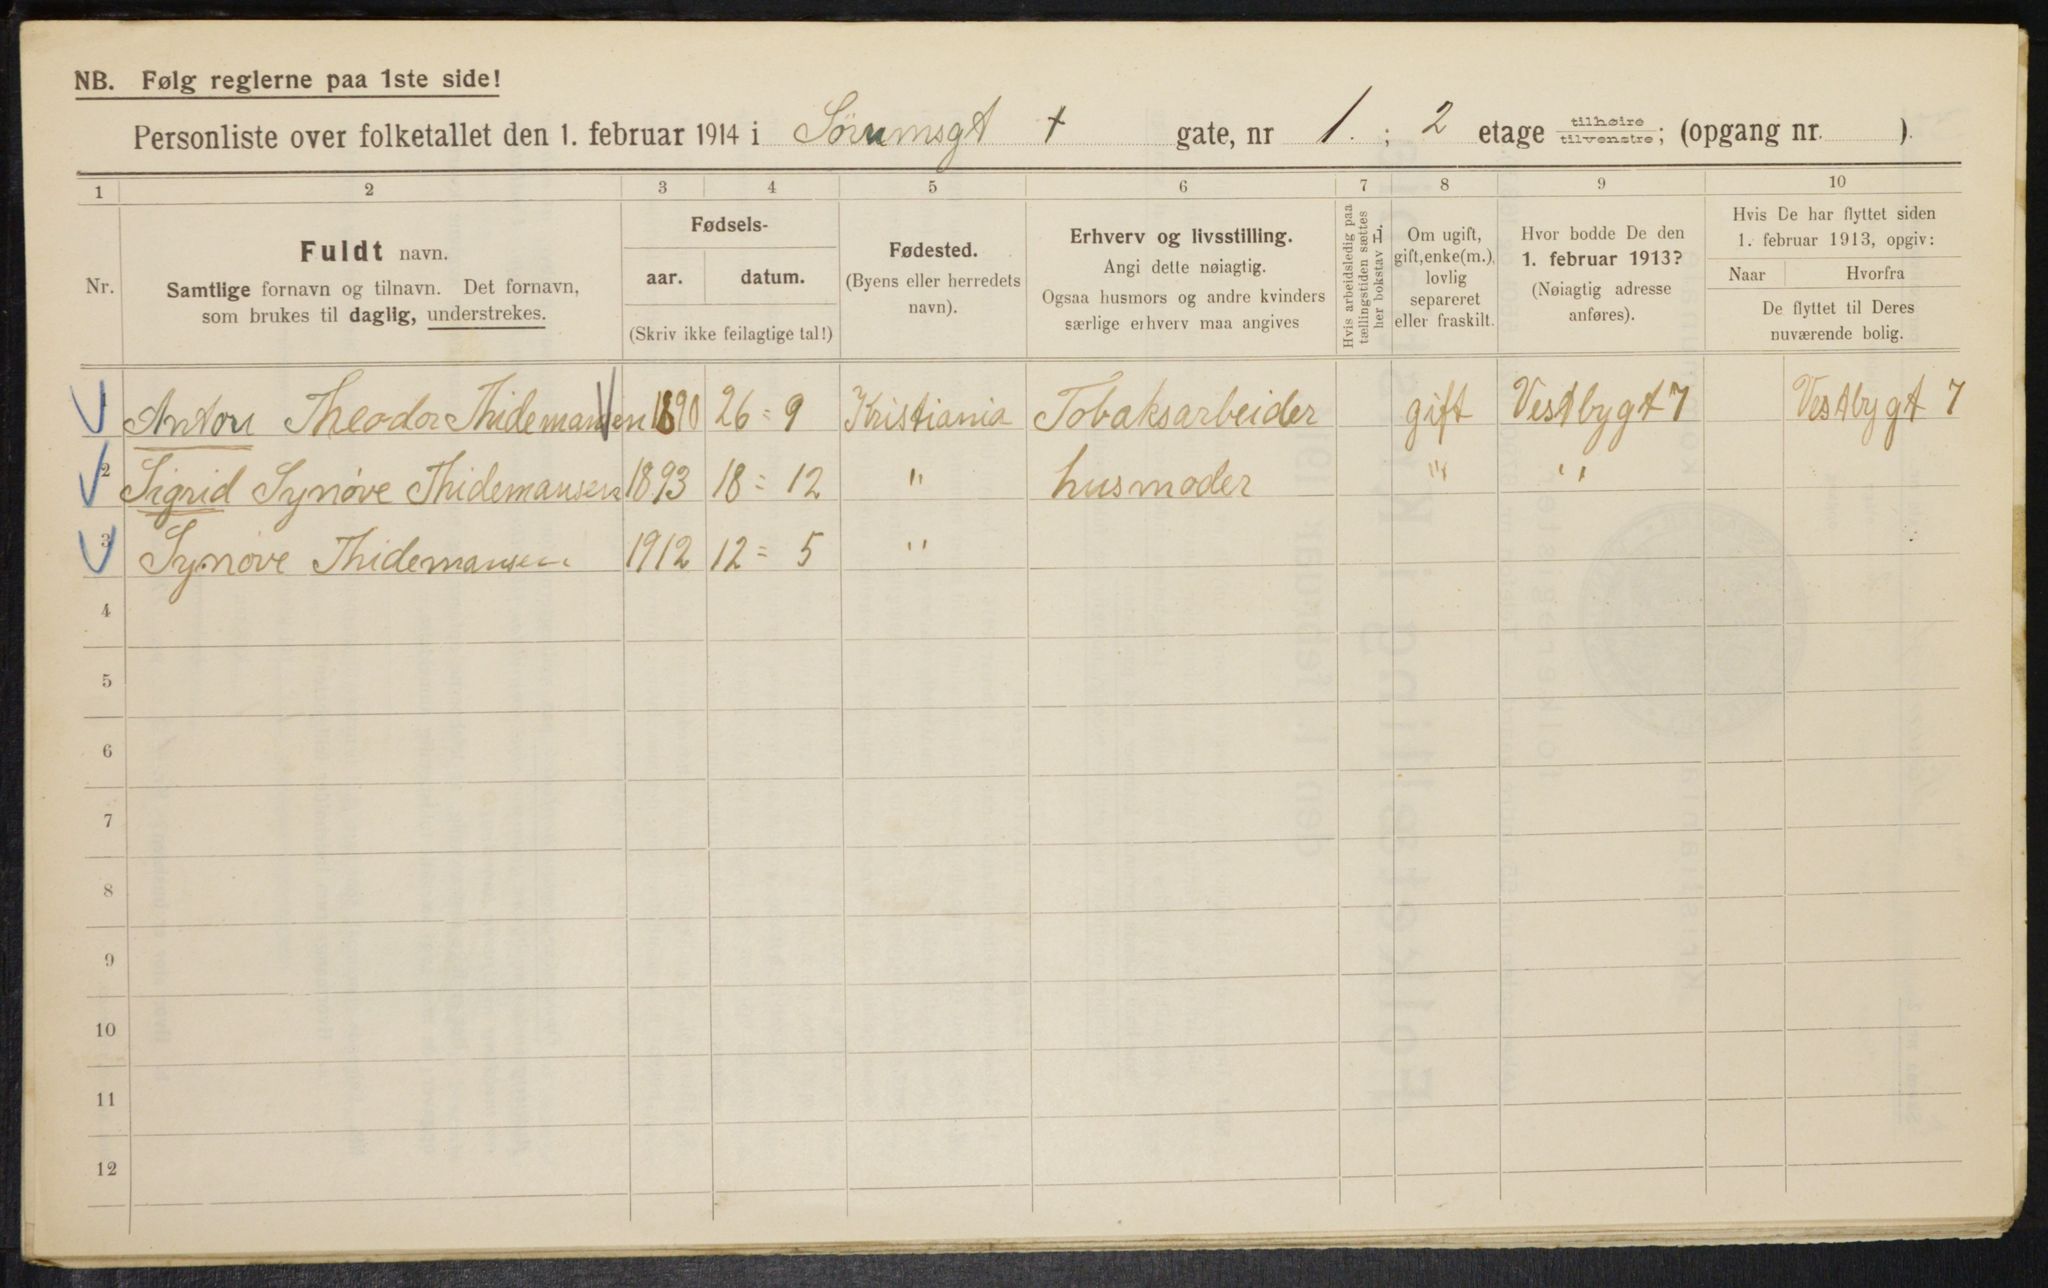 NB. Følg reglerne paa 1ste side!
Personliste over folketallet den 1. februar 1914 i Sørumsgt gate, nr 1. ; 2 etage tilhøire/tilvenstre; (opgang nr. ).
1 2 3 4 5 6 7 8 9 10
Nr.
Fuldt navn.
Samtlige fornavn og tilnavn. Det fornavn,
som brukes til daglig, understrekes.
Fødsels-
aar. datum.
(Skriv ikke feilagtige tal!)
Fødested.
(Byens eller herredets
navn).
Erhverv og livsstilling.
Angi dette nøiagtig.
Ogsaa husmors og andre kvinders
særlige erhverv maa angives
Hvis arbeidsledig paa
tællingstiden sættes
her bokstav L.
Om ugift,
gift, enke(m.),
lovlig
separeret
eller fraskilt.
Hvor bodde De den
1. februar 1913?
(Nøiagtig adresse
anføres).
Hvis De har flyttet siden
1. februar 1913, opgiv:
Naar Hvorfra
De flyttet til Deres
nuværende bolig.
1 Anton Theodor Thidemansen 1890 26 = 9 Kristiania Tobaksarbeider gift Vestbygt 7 Vestbygt 7
2 Sigrid Synøve Thidemansen 1893 18 = 12 " husmoder " "
3 Synøve Thidemansen 1912 12 = 5 "
4
5
6
7
8
9
10
11
12